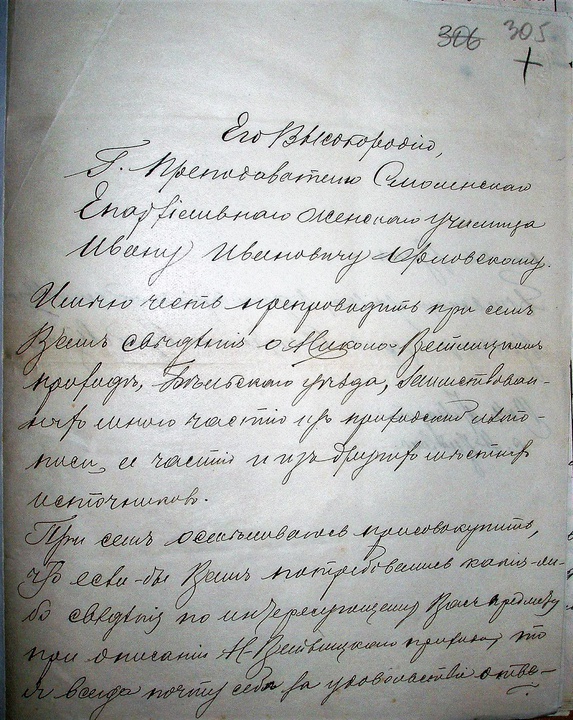 306 305
+
Его Высокородію,
Г. Преподавателю Смоленскаго
Епархіальнаго женскаго училища
Ивану Ивановичу Орловскому.
Имѣю честь препроводить при семъ
Вамъ свѣдѣнія о Николо-Ветлицкомъ
приходѣ, Бѣльскаго уѣзда, заимствован-
ныя мною частію изъ приходской лѣто-
писи, а частію и изъ другихъ мѣстныхъ
источниковъ.
При семъ осмѣливаюсь присовокупить,
что если-бы Вамъ потребовались какія-ли-
бо свѣдѣнія по интересующему Васъ предмету
при описаніи Н-Ветлицкаго прихода, то
я всегда почту себѣ за удовольствіе отвѣ-